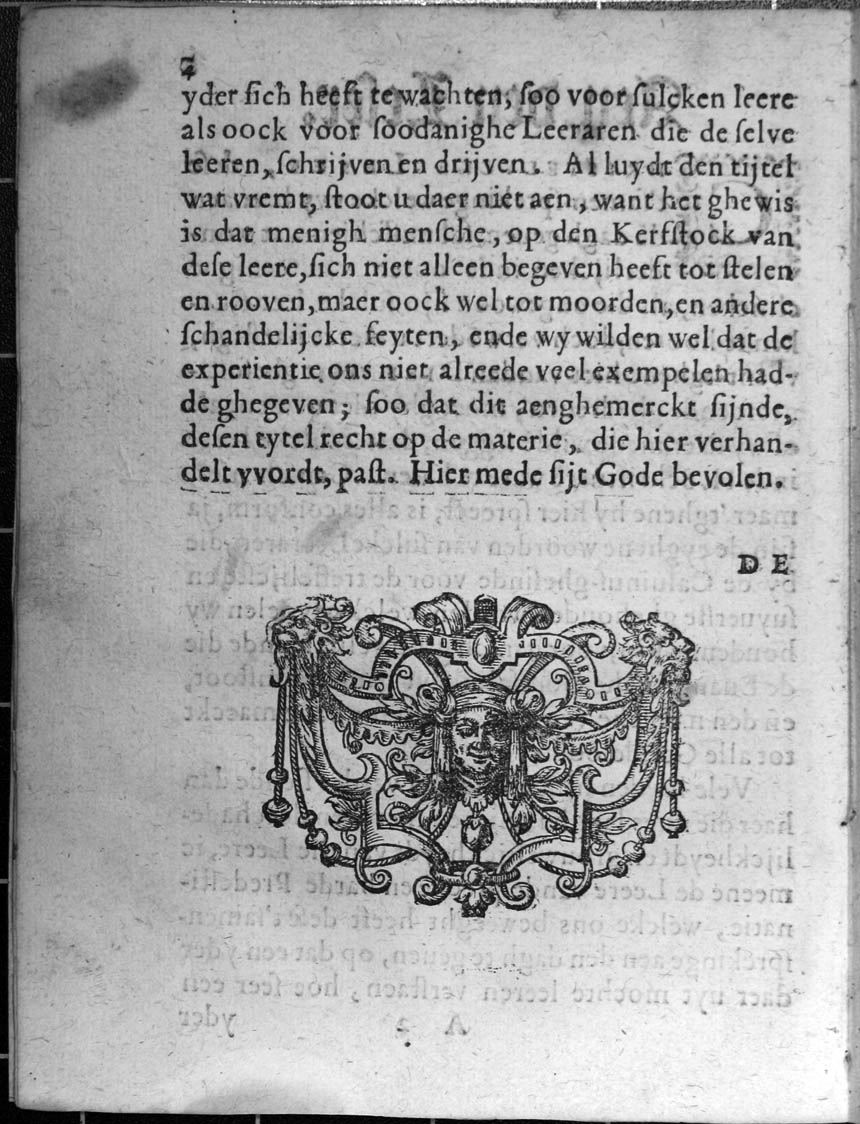 4
yder sich heeft te wachten, soo voor sulcken leere
als oock voor soodanighe Leeraren die de selve
leeren, schrijven en drijven. Al luydt den tijtel
wat vremt, stoot u daer niet aen, want het ghewis
is dat menigh mensche, op den Kerfstock van
dese leere, sich niet alleen begeven heeft tot stelen
en rooven, maer oock wel tot moorden, en andere
schandelijcke feyten, ende wy wilden wel dat de
experientie ons niet alreede veel exempelen had-
de ghegeven; soo dat dit aenghemerckt sijnde,
desen tytel recht op de materie, die hier verhan-
delt vvordt, past. Hier mede sijt Gode bevolen.
DE